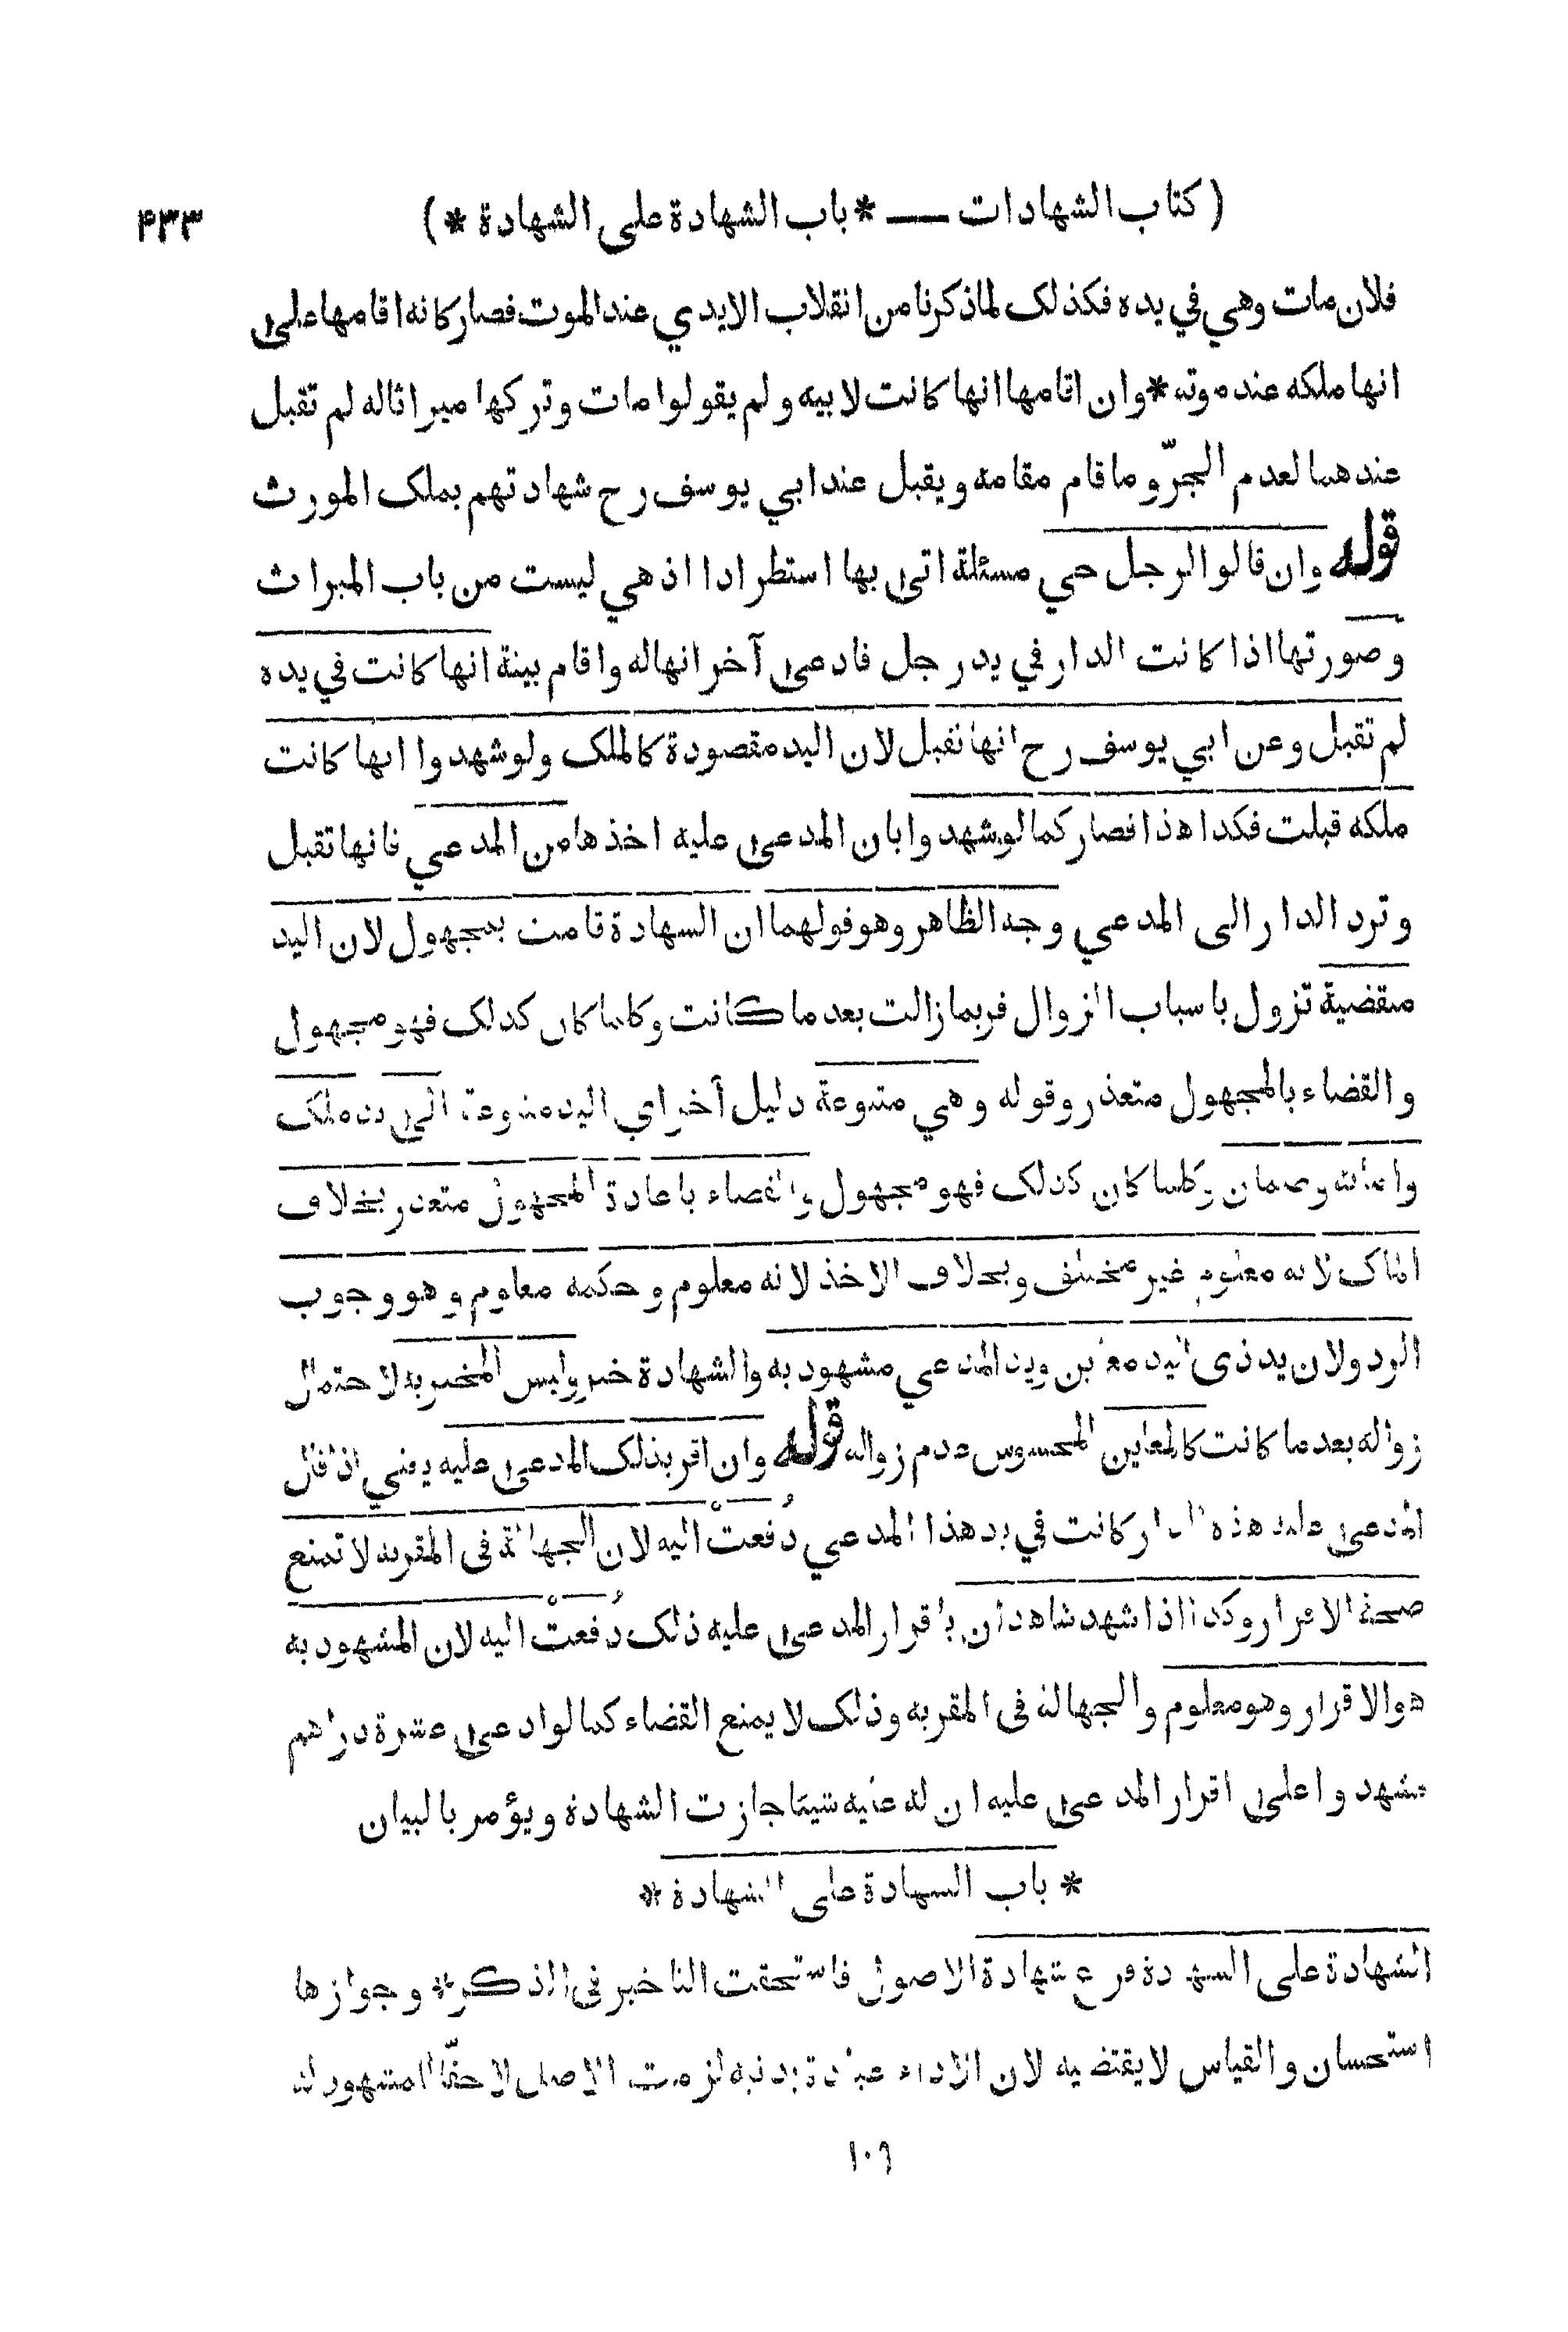 ( كتاب الشهادات — * باب الشهادة على الشهادة * )
۴۳۳
فلان مات وهي في يده فكذلك لما ذكرنا من انقلاب الايدي عند الموت فصار كانه اقامها على
انها ملكه عند موته * وان اقامها انها كانت لابيه ولم يقولوا مات وتركها ميراثا له لم تقبل
عندهما لعدم الجرّ وما قام مقامه ويقبل عند ابي يوسف رح شهادتهم بملك المورث
قوله وان قالوا لرجل حي مسئلة اتى بها استطرادا اذ هي ليست من باب الميراث
وصورتها اذا كانت الدار في يد رجل فادعى آخر انها له واقام بينة انها كانت في يده
لم تقبل وعن ابي يوسف رح انها تقبل لان اليد مقصودة كالملك ولو شهدوا انها كانت
ملكه قبلت فكذا هذا فصار كما لو شهدوا بان المدعى عليه اخذها من المدعي فانها تقبل
وترد الدار الى المدعي وجه الظاهر وهو قولهما ان الشهادة قامت بمجهول لان اليد
منقضية تزول باسباب الزوال فربما زالت بعد ما كانت وكلما كان كذلك فهو مجهول
والقضاء بالمجهول متعذر وقوله وهي متنوعة دليل آخر اي اليد متنوعة الى يد ملك
وامانة وضمان وكلما كان كذلك فهو مجهول والقضاء باعادة المجهول متعذر بخلاف
الملك لانه معلوم غير مختلف وبخلاف الاخذ لانه معلوم وحكمه معلوم وهو وجوب
الرد ولان يد ذي اليد معاين ويد المدعي مشهود به والشهادة خبر وليس المخبر به لاحتمال
زواله بعد ما كانت كالمعاين المحسوس عدم زواله قوله وان اقر بذلك المدعى عليه يعني اذا قال
المدعى عليه هذه الدار كانت في يد هذا المدعي دُفعتْ اليه لان الجهالة في المقر به لا تمنع
صحة الاقرار وكذا اذا شهد شاهدان باقرار المدعى عليه ذلك دُفعتْ اليه لان المشهود به
هو الاقرار وهو معلوم والجهالة في المقر به وذلك لا يمنع القضاء كما لو ادعى عشرة دراهم
فشهدوا على اقرار المدعى عليه ان له عليه شيئا جازت الشهادة ويؤمر بالبيان
* باب الشهادة على الشهادة *
الشهادة على الشهادة فرع شهادة الاصول فاستحقت التاخير في الذكر * وجوازها
استحسان والقياس لا يقتضيه لان الاداء عبادة بدنية لزمت الاصل لا حقّا للمشهود له
۱۰۹